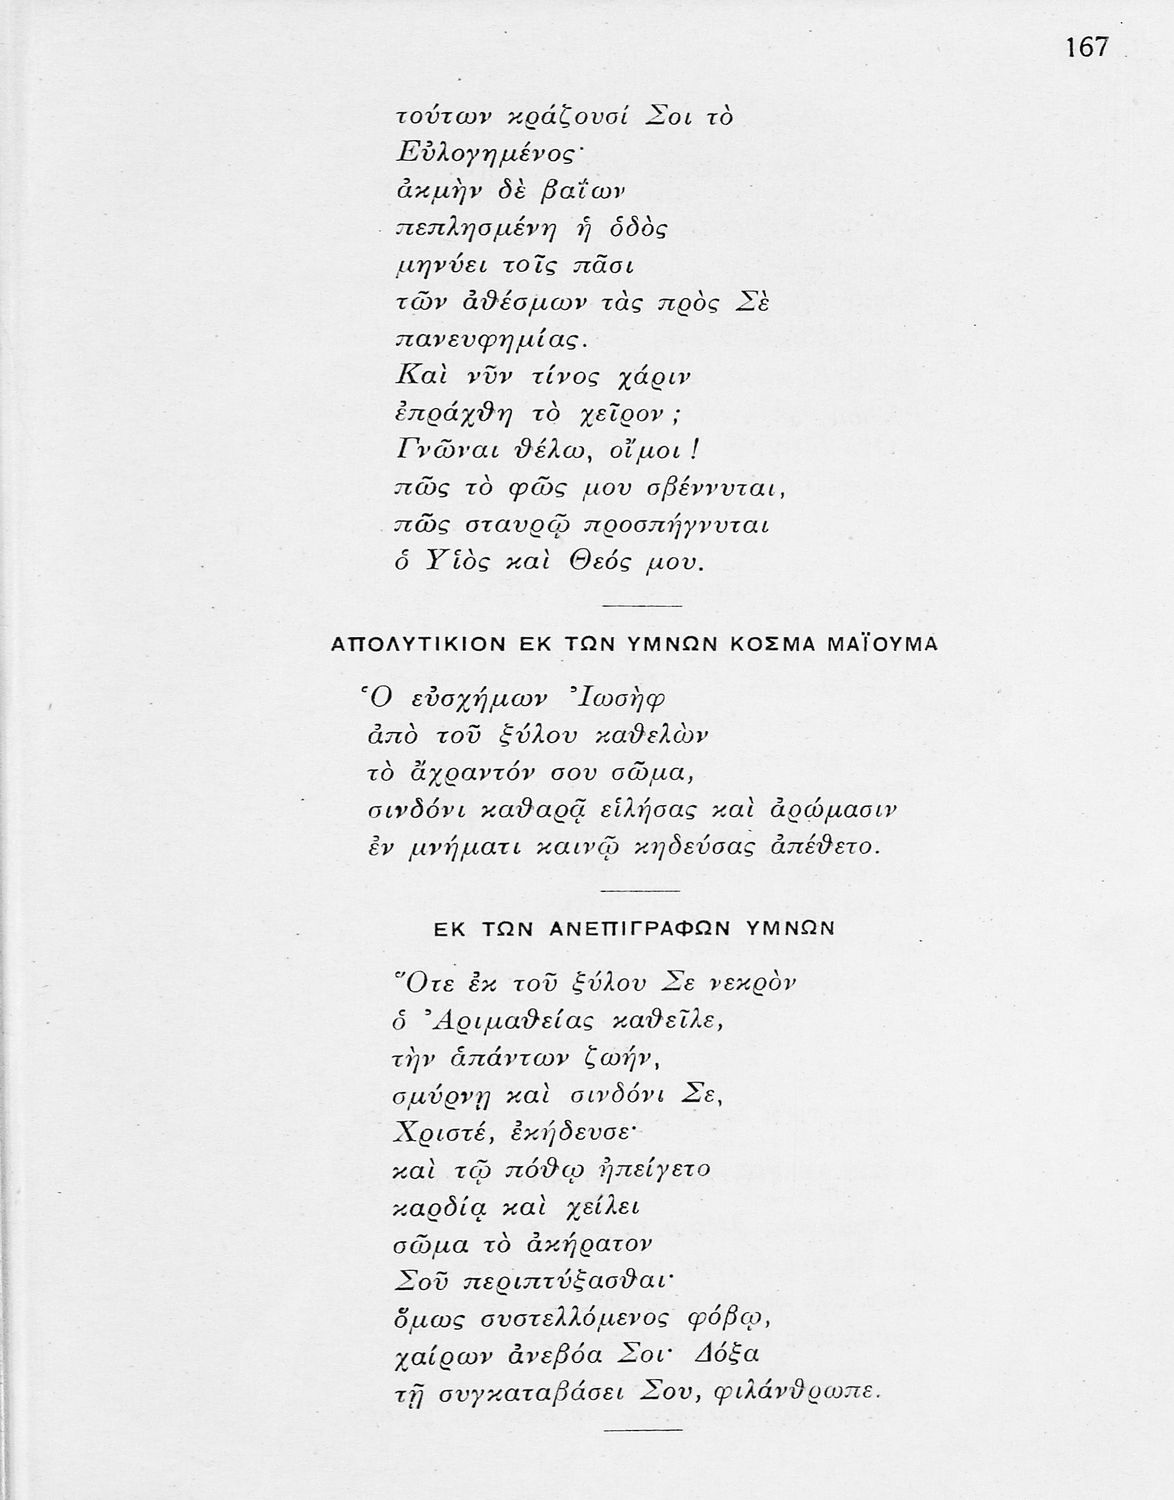 167
τούτων κράζουσί Σοι τὸ
Εὐλογημένος·
ἀκμὴν δὲ βαΐων
πεπλησμένη ἡ ὁδὸς
μηνύει τοῖς πᾶσι
τῶν ἀθέσμων τὰς πρὸς Σὲ
πανευφημίας.
Καὶ νῦν τίνος χάριν
ἐπράχθη τὸ χεῖρον ;
Γνῶναι θέλω, οἴμοι !
πῶς τὸ φῶς μου σβέννυται,
πῶς σταυρῷ προσπήγνυται
ὁ Υἱὸς καὶ Θεός μου.
ΑΠΟΛΥΤΙΚΙΟΝ ΕΚ ΤΩΝ ΥΜΝΩΝ ΚΟΣΜΑ ΜΑΪΟΥΜΑ
Ὁ εὐσχήμων Ἰωσὴφ
ἀπὸ τοῦ ξύλου καθελὼν
τὸ ἄχραντόν σου σῶμα,
σινδόνι καθαρᾷ εἱλήσας καὶ ἀρώμασιν
ἐν μνήματι καινῷ κηδεύσας ἀπέθετο.
ΕΚ ΤΩΝ ΑΝΕΠΙΓΡΑΦΩΝ ΥΜΝΩΝ
Ὅτε ἐκ τοῦ ξύλου Σε νεκρὸν
ὁ Ἀριμαθείας καθεῖλε,
τὴν ἁπάντων ζωήν,
σμύρνῃ καὶ σινδόνι Σε,
Χριστέ, ἐκήδευσε·
καὶ τῷ πόθῳ ἠπείγετο
καρδίᾳ καὶ χείλει
σῶμα τὸ ἀκήρατον
Σοῦ περιπτύξασθαι·
ὅμως συστελλόμενος φόβῳ,
χαίρων ἀνεβόα Σοι· Δόξα
τῇ συγκαταβάσει Σου, φιλάνθρωπε.